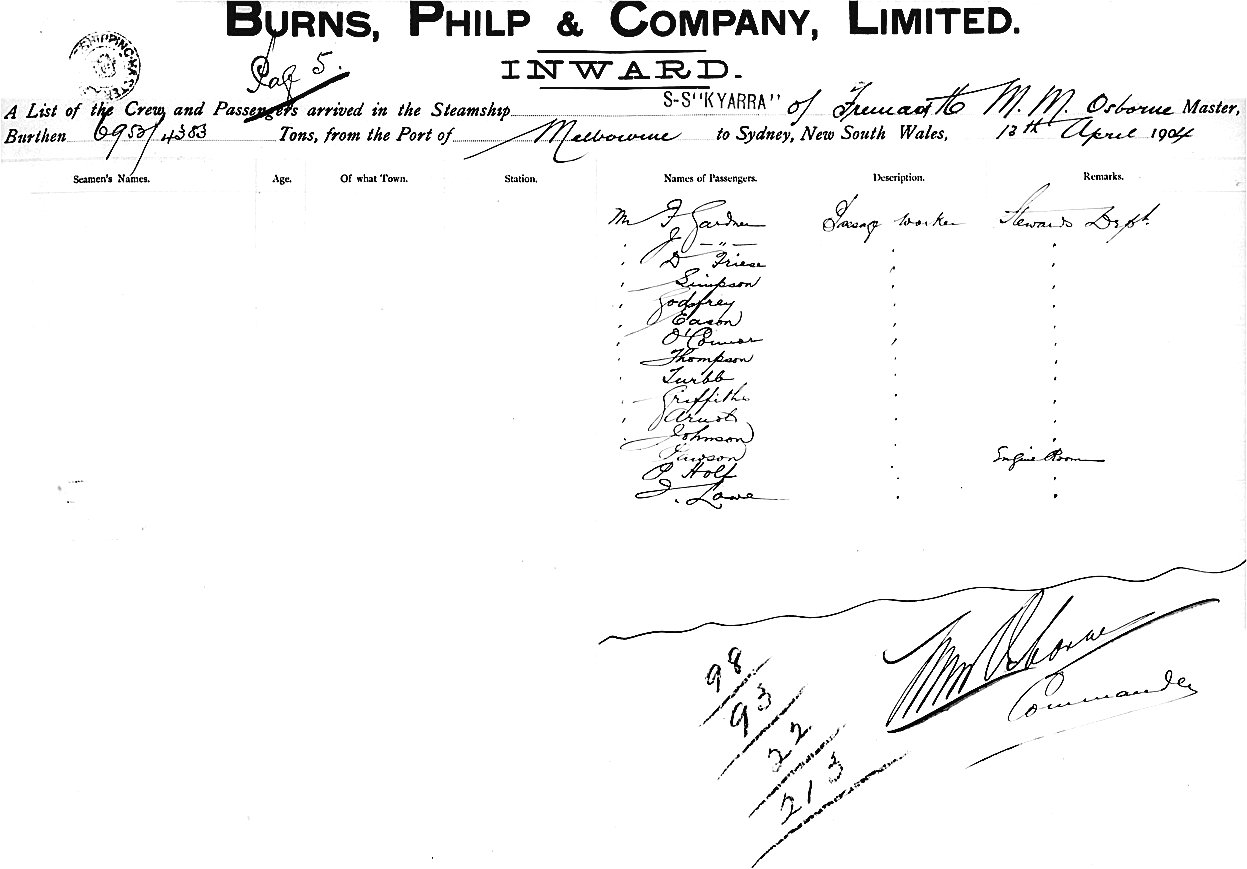 BURNS, PHILP & COMPANY, LIMITED.
Pag 5.
INWARD.
A List of the Crew and Passengers arrived in the Steamship S-S "KYARRA" of Fremantle M. M. Osborne Master,
Burthen 6953/4383 Tons, from the Port of Melbourne to Sydney, New South Wales, 13th April 1904
Seamen's Names. Age. Of what Town. Station. Names of Passengers. Description. Remarks.
Mr F. Gardner Passage Worker Stewards Dept.
" J. —"— " "
" D Friese " "
" Simpson " "
" Godfrey " "
" Eason " "
" O'Connor " "
" Thompson " "
" Turbb " "
" Griffiths " "
" Arnot " "
" Johnson " "
Dawson Engine Room
P Holf " "
J. Lowe " "
98
93
22
213
Osborne
Commander